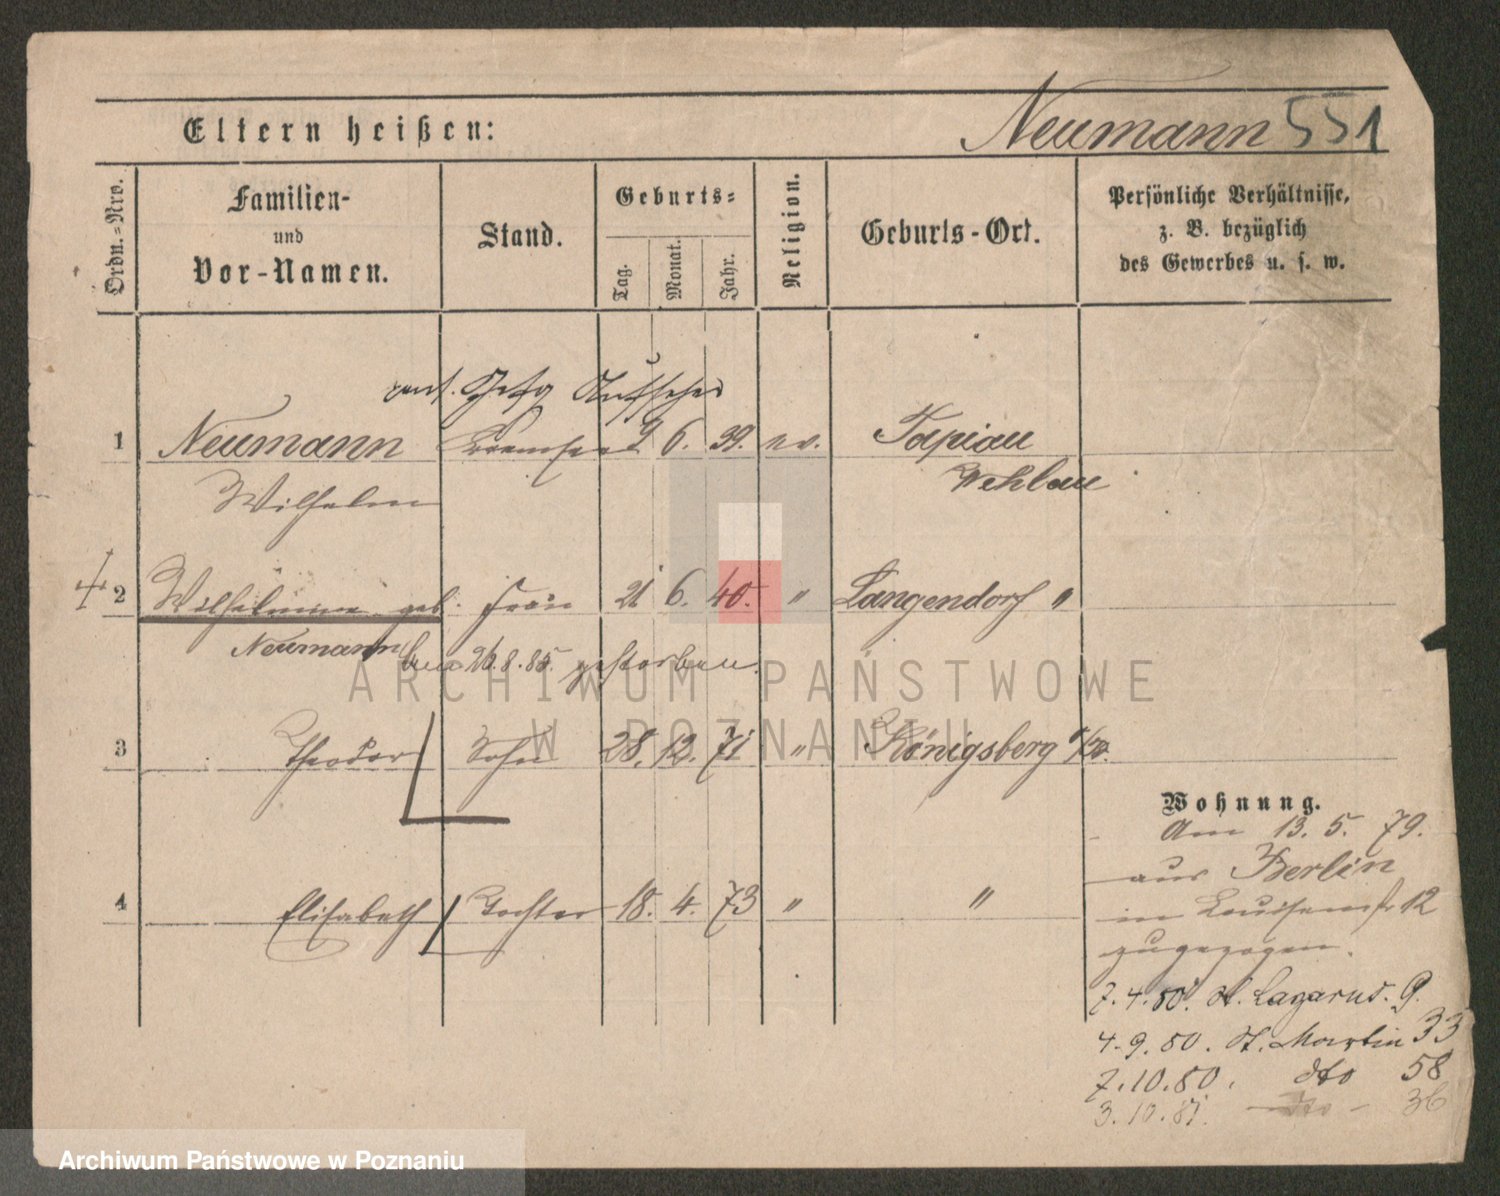 Eltern heißen: Neumann 551
Ordn.-Nro.
Familien-
und
Vor-Namen.
Stand.
Geburts-
Tag.
Monat.
Jahr.
Religion.
Geburts-Ort.
Persönliche Verhältnisse,
z. B. bezüglich
des Gewerbes u. s. w.
Aufseher
1 Neumann 9 6. 39. ev. Tapiau
Wilhelm Wehlau
2 Wilhelmine geb. Frau 21 6. 40. " Langendorf "
Neumann 26.8.85. gestorben.
3 Theodor Sohn 28. 12. 71 " Königsberg
4 Elisabeth Tochter 18. 4. 73 " "
Wohnung.
Am 13. 5. 79.
aus Berlin
in Louisenstr 12
zugezogen.
7.4.80. St. Lazarus. 9.
4.9.80. St. Martin 33
7.10.80. dto 58
3.10.81. dto - 36
ARCHIWUM PAŃSTWOWE
W POZNANIU
Archiwum Państwowe w Poznaniu